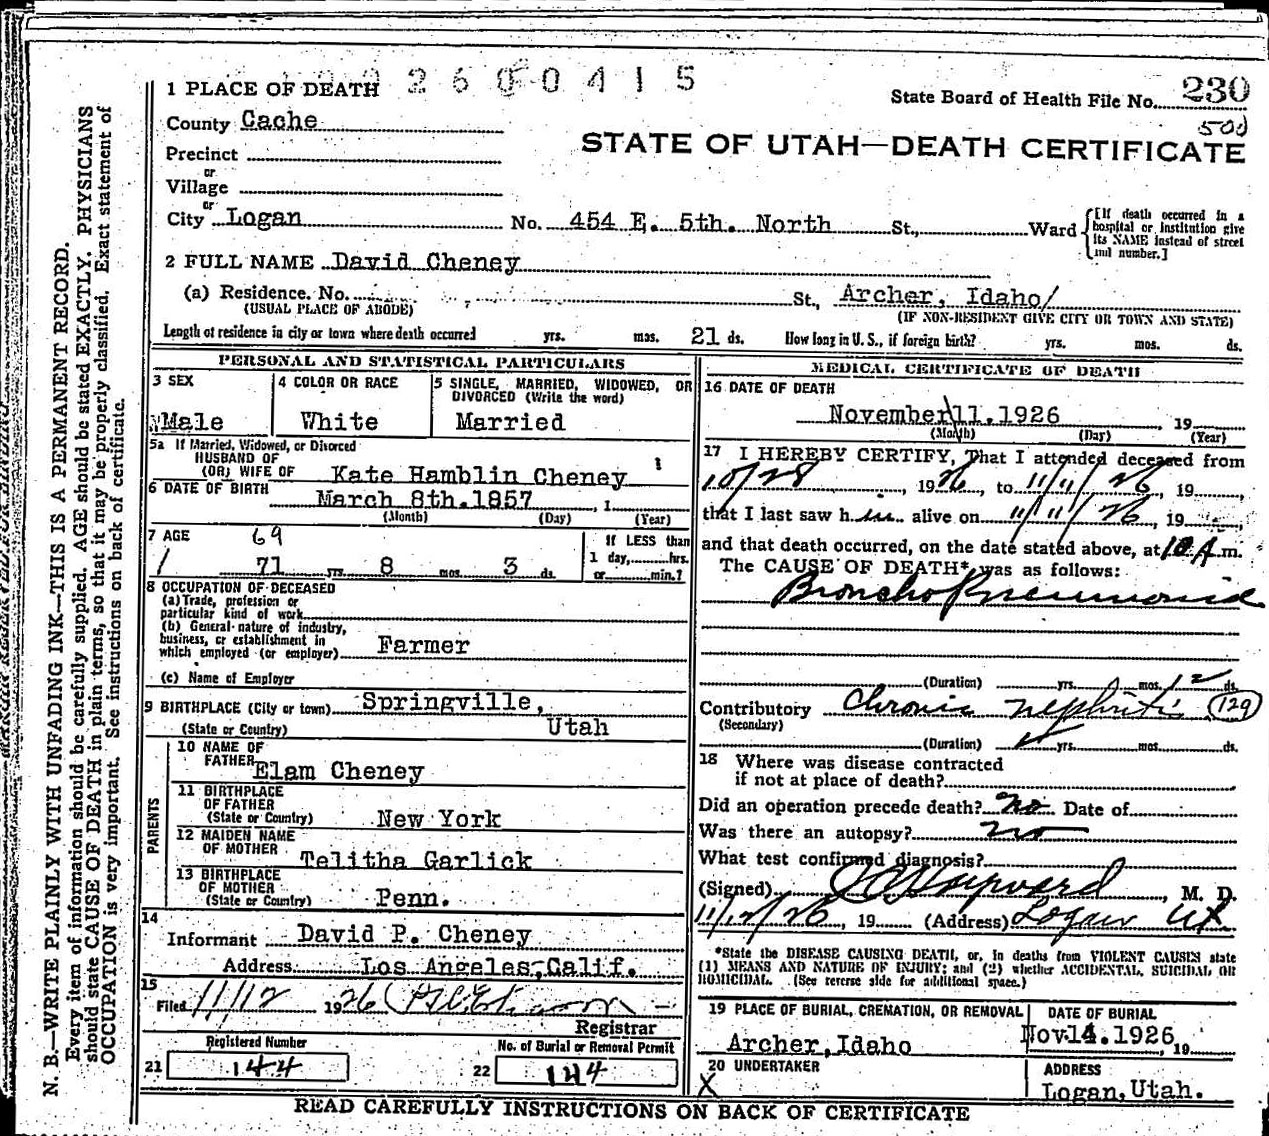 2600415
1 PLACE OF DEATH
State Board of Health File No. 230
500
County Cache
STATE OF UTAH—DEATH CERTIFICATE
Precinct
or
Village
or
City Logan No. 454 E. 5th. North St., Ward
[If death occurred in a hospital or institution give its NAME instead of street and number.]
2 FULL NAME David Cheney
(a) Residence. No. St., Archer, Idaho/
(USUAL PLACE OF ABODE) (IF NON-RESIDENT GIVE CITY OR TOWN AND STATE)
Length of residence in city or town where death occurred yrs. mos. 21 ds. How long in U. S., if foreign birth? yrs. mos. ds.
PERSONAL AND STATISTICAL PARTICULARS
3 SEX
Male
4 COLOR OR RACE
White
5 SINGLE, MARRIED, WIDOWED, OR
DIVORCED (Write the word)
Married
5a If Married, Widowed, or Divorced
HUSBAND OF
(OR) WIFE OF Kate Hamblin Cheney
6 DATE OF BIRTH March 8th.1857, 1
(Month) (Day) (Year)
7 AGE 69
71 yrs. 8 mos. 3 ds.
If LESS than
1 day, hrs.
or min.?
8 OCCUPATION OF DECEASED
(a) Trade, profession or
particular kind of work
(b) General nature of industry,
business, or establishment in
which employed (or employer) Farmer
(c) Name of Employer
9 BIRTHPLACE (City or town) Springville,
(State or Country) Utah
PARENTS
10 NAME OF
FATHER Elam Cheney
11 BIRTHPLACE
OF FATHER
(State or Country) New York
12 MAIDEN NAME
OF MOTHER Telitha Garlick
13 BIRTHPLACE
OF MOTHER
(State or Country) Penn.
14
Informant David P. Cheney
Address Los Angeles, Calif.
15
Filed 11/12 1926
Registrar
Registered Number
21 144
No. of Burial or Removal Permit
22 144
MEDICAL CERTIFICATE OF DEATH
16 DATE OF DEATH
November 11, 1926, 19
(Month) (Day) (Year)
17 I HEREBY CERTIFY, That I attended deceased from
10/28, 1926, to 11/11/26, 19,
that I last saw him alive on 11/11/26, 19
and that death occurred, on the date stated above, at 10 A.m.
The CAUSE OF DEATH* was as follows:
Broncho Pneumonia
(Duration) yrs. mos. 12 ds.
Contributory Chronic nephritis (129)
(Secondary)
(Duration) yrs. mos. ds.
18 Where was disease contracted
if not at place of death?
Did an operation precede death? No Date of
Was there an autopsy? no
What test confirmed diagnosis?
(Signed) Hayward, M. D.
11/12/26, 19 (Address) Logan Ut
*State the DISEASE CAUSING DEATH, or, in deaths from VIOLENT CAUSES state
(1) MEANS AND NATURE OF INJURY; and (2) whether ACCIDENTAL, SUICIDAL OR
HOMICIDAL. (See reverse side for additional space.)
19 PLACE OF BURIAL, CREMATION, OR REMOVAL
Archer, Idaho
DATE OF BURIAL
Nov.14.1926, 19
20 UNDERTAKER
X
ADDRESS
Logan, Utah.
READ CAREFULLY INSTRUCTIONS ON BACK OF CERTIFICATE
N. B.—WRITE PLAINLY WITH UNFADING INK—THIS IS A PERMANENT RECORD.
Every item of information should be carefully supplied. AGE should be stated EXACTLY. PHYSICIANS
should state CAUSE OF DEATH in plain terms, so that it may be properly classified. Exact statement of
OCCUPATION is very important. See instructions on back of certificate.